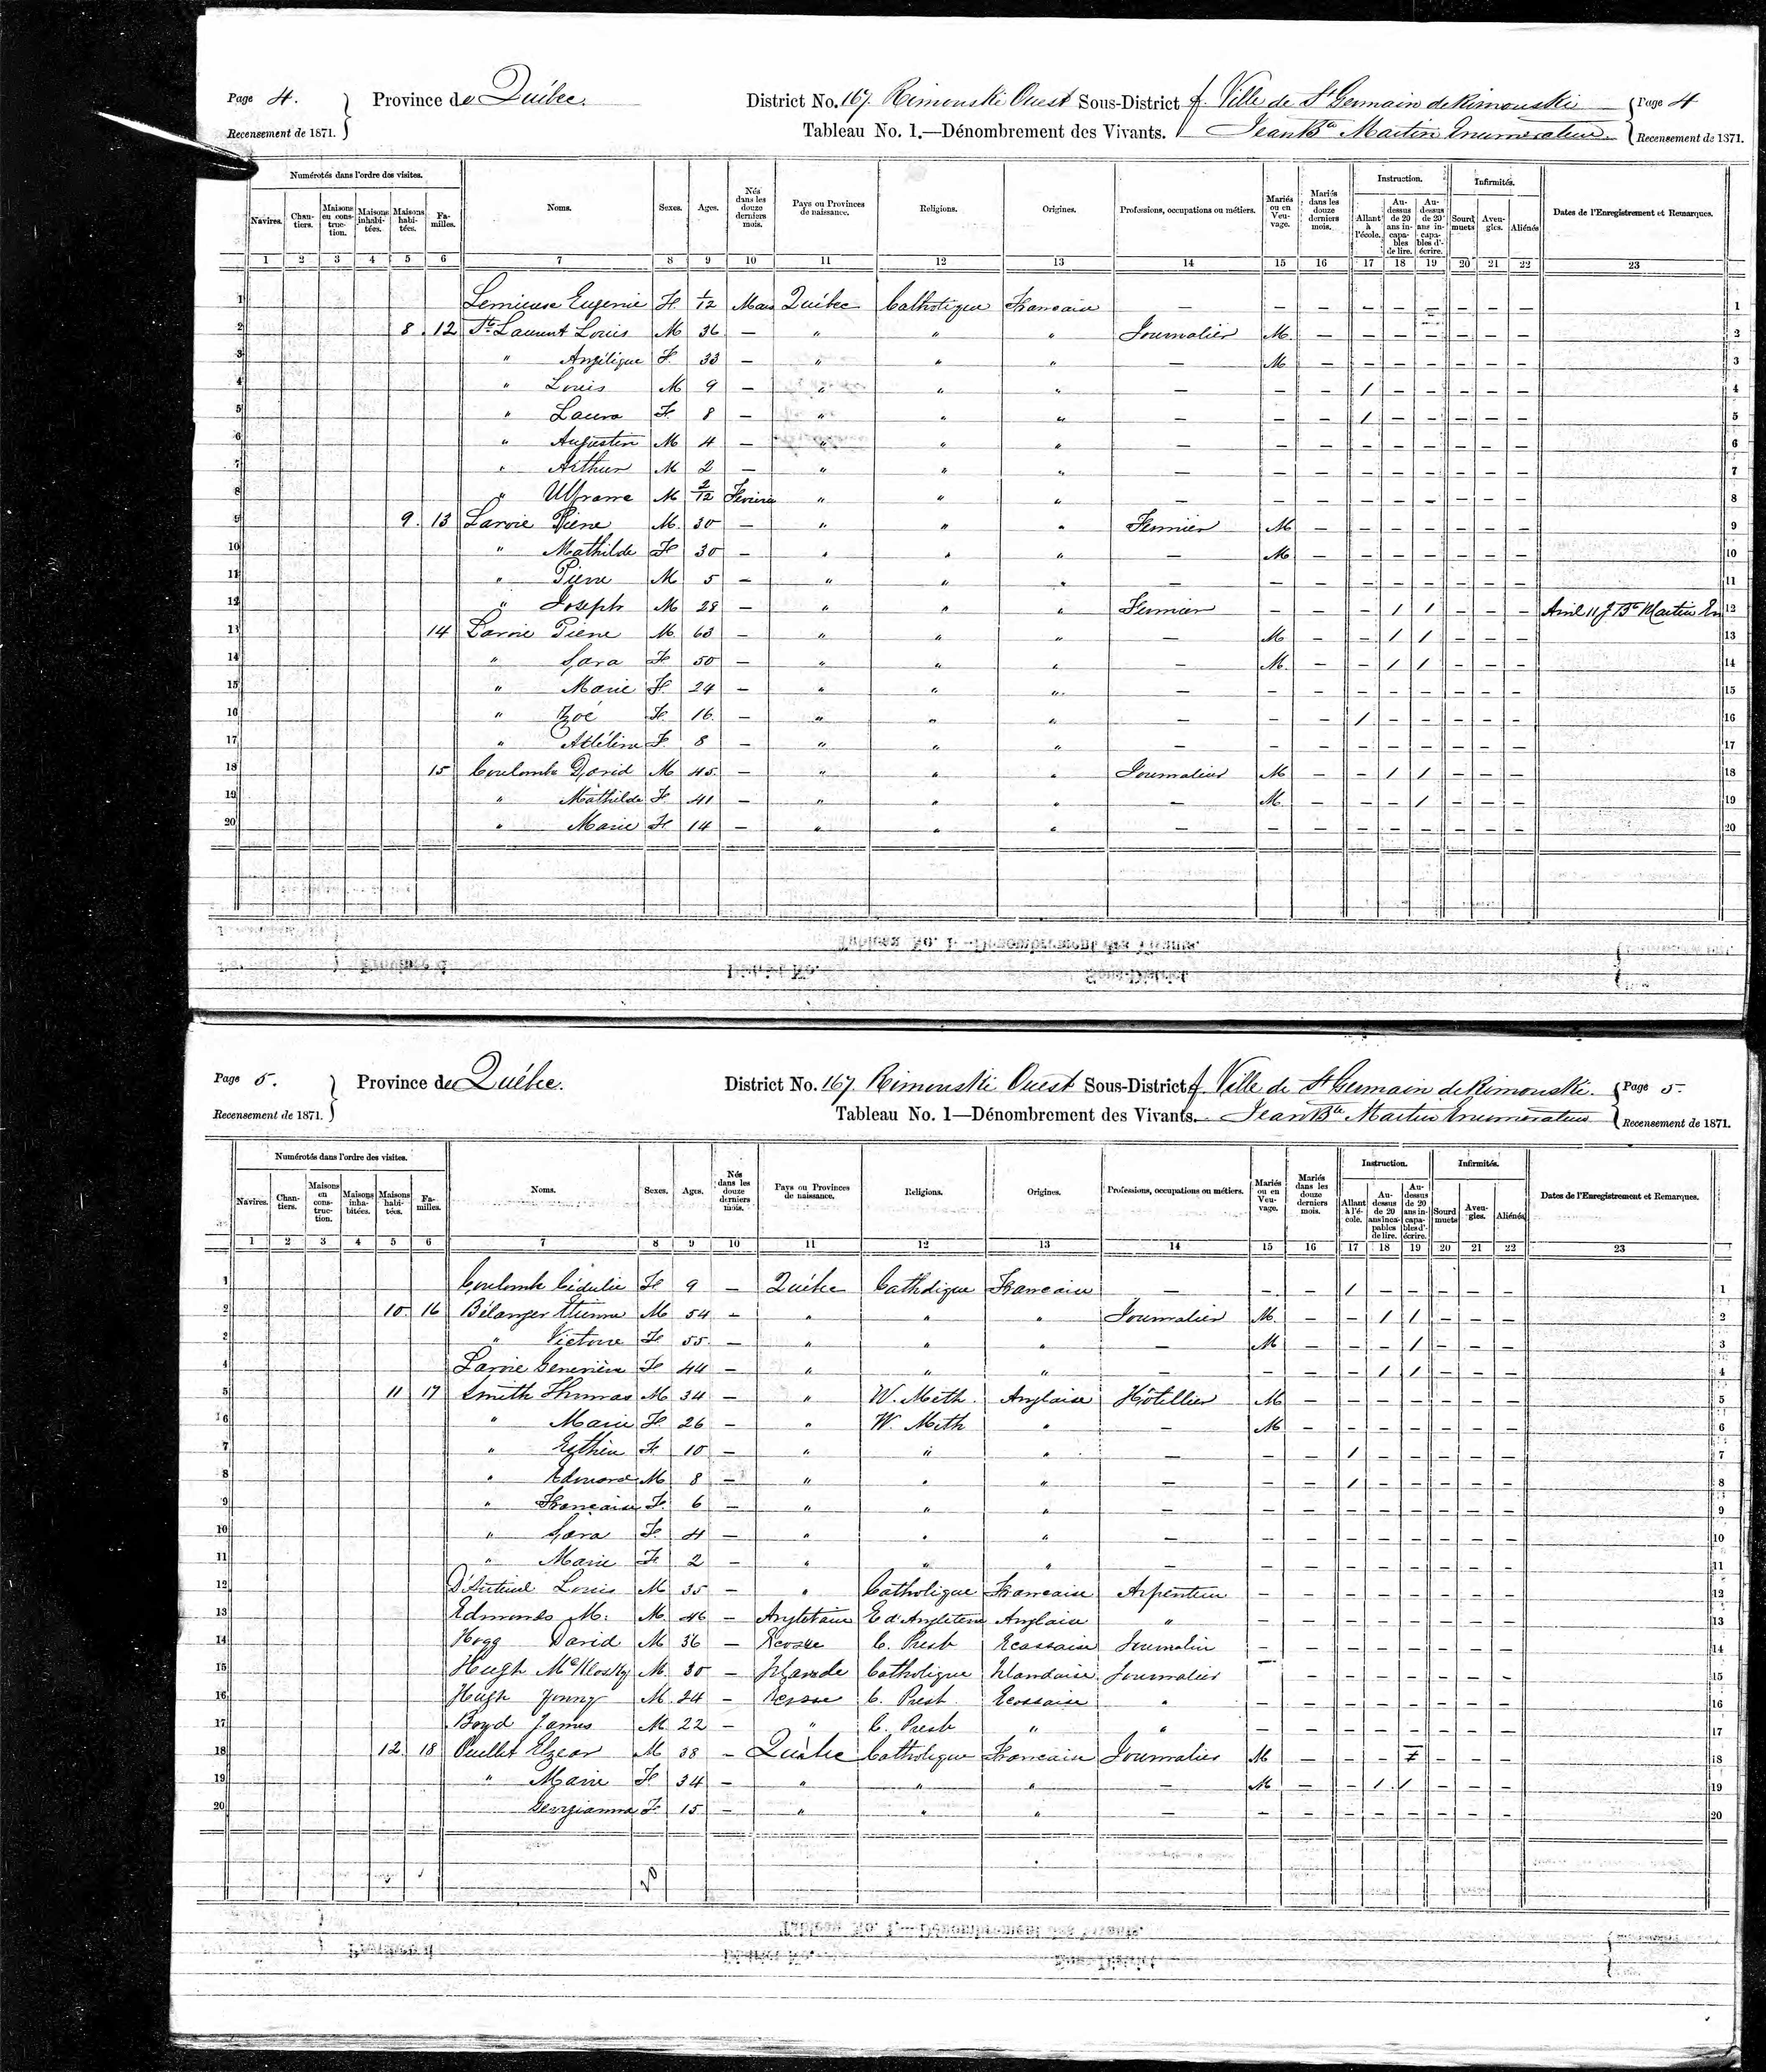 Page 4. Province de Québec. District No. 167. Rimouski Ouest Sous-District f. Ville de St Germain de Rimouski Page 4
Recensement de 1871. Tableau No. 1.—Dénombrement des Vivants. Jean Bte Martin Enumerateur. Recensement de 1871.
Numérotés dans l'ordre des visites. Instruction. Infirmités.
Navires. Chan-tiers. Maisons en cons-truc-tion. Maisons inhabi-tées. Maisons habi-tées. Fa-milles. Noms. Sexes. Ages. Nés dans les douze derniers mois. Pays ou Provinces de naissance. Religions. Origines. Professions, occupations ou métiers. Mariés ou en Veu-vage. Mariés dans les douze derniers mois. Allant à l'école. Au-dessus de 20 ans in-capa-bles de lire. Au-dessus de 20 ans in-capa-bles d'-écrire. Sourd muets Aveu-gles. Aliénés Dates de l'Enregistrement et Remarques.
1 2 3 4 5 6 7 8 9 10 11 12 13 14 15 16 17 18 19 20 21 22 23
1 Lemieux Eugenie F 1/12 Mars Québec Catholique Francaise — — — — — — — — — 1
2 8. 12 St. Laurent Louis M 36 — " " " Journalier M. — — — — — — — 2
3 " Angélique F 33 — " " " — M — — — — — — — 3
4 " Louis M 9 — " " " — — — 1 — — — — — 4
5 " Laura F 8 — " " " — — — 1 — — — — — 5
6 " Augustin M 4 — " " " — — — — — — — — — 6
7 " Arthur M 2 — " " " — — — — — — — — — 7
8 " Ulfranc M 2/12 Fevrier " " " — — — — — — — — — 8
9 9. 13 Lavoie Pierre M. 30 — " " " Fermier M — — — — — — — 9
10 " Mathilde F 30 — " " " — M — — — — — — — 10
11 " Pierre M 5 — " " " — — — — — — — — — 11
12 " Joseph M 28 — " " " Fermier — — — 1 1 — — — Avril 11 J Bte Martin En 12
13 14 Lavoie Pierre M. 63 — " " " — M — — 1 1 — — — 13
14 " Sara F 50 — " " " — M. — — 1 1 — — — 14
15 " Marie F 24 — " " " — — — — — — — — — 15
16 " Zoé F 16. — " " " — — — 1 — — — — — 16
17 " F. 8 — " " " — — — — — — — — — 17
18 15 Coulombe David M 45. — " " " Journalier M — — 1 1 — — — 18
19 " Mathilde F 41 — " " " — M — — — 1 — — — 19
20 " Marie F 14 — " " " — — — — — — — — — 20
Page 5. Province de Québec. District No. 167. Rimouski Ouest Sous-District f. Ville de St Germain de Rimouski. Page 5.
Recensement de 1871. Tableau No. 1—Dénombrement des Vivants. Jean Bte Martin Enumerateur Recensement de 1871.
Numérotés dans l'ordre des visites. Instruction. Infirmités.
Navires. Chan-tiers. Maisons en cons-truc-tion. Maisons inha-bitées. Maisons habi-tées. Fa-milles. Noms. Sexes. Ages. Nés dans les douze derniers mois. Pays ou Provinces de naissance. Religions. Origines. Professions, occupations ou métiers. Mariés ou en Veu-vage. Mariés dans les douze derniers mois. Allant à l'é-cole. Au-dessus de 20 ans inca-pables de lire. Au-dessus de 20 ans in-capa-bles d'-écrire. Sourd muets Aveu-gles. Aliénés Dates de l'Enregistrement et Remarques.
1 2 3 4 5 6 7 8 9 10 11 12 13 14 15 16 17 18 19 20 21 22 23
1 Coulombe Cédulie F 9 — Québec Catholique Francaise — — — 1 — — — — — 1
2 10. 16 Bélanger Etienne M 54 — " " " Journalier M. — — 1 1 — — — 2
2 " Victoire F 55. — " " " — M — — — 1 — — — 3
4 Lavoie Genevieve F 44 — " " " — — — — 1 1 — — — 4
5 11 17 Smith Thomas M 34 — " W. Meth. Anglaise Hôtellier M — — — — — — — 5
6 " Marie F 26 — " W. Meth " — M — — — — — — — 6
7 " F 10 — " " " — — — 1 — — — — — 7
8 " Edmond M 8 — " " " — — — 1 — — — — — 8
9 " Francaise F. 6 — " " " — — — — — — — — — 9
10 " Sara F. 4 — " " " — — — — — — — — — 10
11 " Marie F 2 — " " " — — — — — — — — — 11
12 D'Auteuil Louis M 35 — " Catholique Francaise Arpenteur — — — — — — — — 12
13 Edmonds M. M. 46 — Angleterre E d'Angleterre Anglaise " — — — — — — — — 13
14 Hogg David M 36 — Ecosse C. Presb Ecossaise Journalier — — — — — — — — 14
15 Hugh McKlosky M. 30 — Irlande Catholique Irlandaise Journalier — — — — — — — — 15
16 Hugh Young M. 24 — Ecosse C. Presb. Ecossaise " — — — — — — — — 16
17 Boyd James M. 22 — " C. Presb " " — — — — — — — — 17
18 12. 18 Ouellet Elzear M 38 — Québec Catholique Francaise Journalier M — — — — — — 18
19 " Marie F 34 — " " " — M — — 1 1 — — — 19
20 Georgianna F. 15 — " " " — — — — — — — — — 20